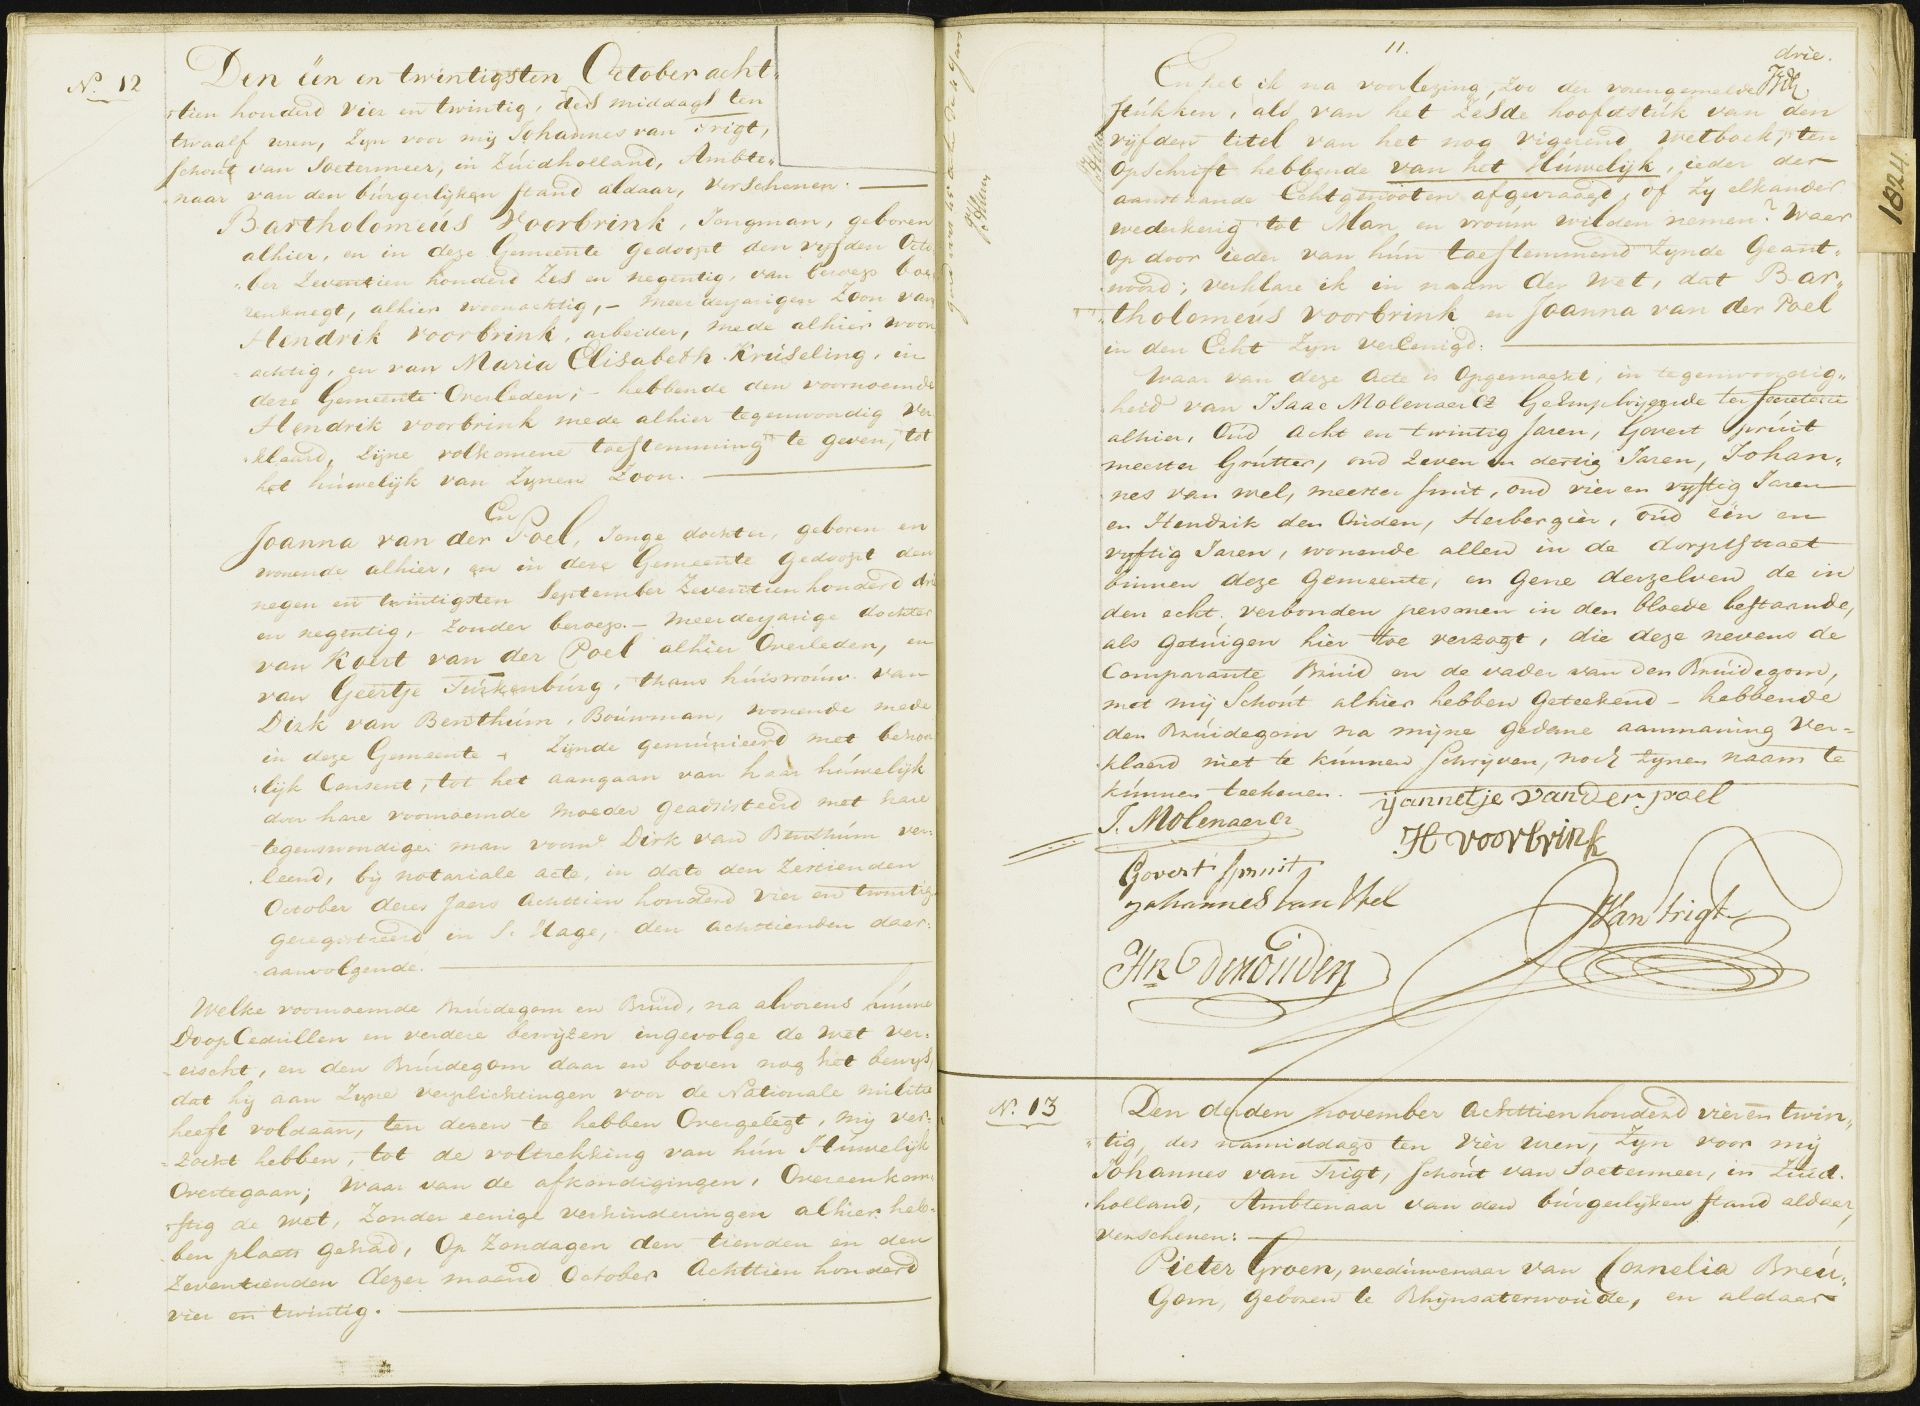 N.o 12
Den één en twintigsten October acht-
-tien honderd vier en twintig, des middags ten
twaalf uren, Zyn voor mij Johannes van Trigt,
Schout van Soetermeer, in Zuidholland, Ambte-
naar van den búrgerlijken stand aldaar, verschenen:
Bartholomeús Voorbrink, Jongman, geboren
alhier, en in deze Gemeente gedoopt den vyfden Octo
-ber Zeventien honderd Zes en negentig, van beroep boe
renknegt, alhier woonachtig, - meerderjarigen Zoon van
Hendrik Voorbrink, arbeider, mede alhier woon
achtig, en van Maria Elisabeth Krúseling, in
deze Gemeente Overleden; - hebbende den voornoemde
Hendrik voorbrink mede alhier tegenwoordig ver
-klaard, Zijne volkomene toestemming te geven, tot
het húwelijk van Zynen Zoon.
En
Joanna van der Poel, Jonge dochter, geboren en
wonende alhier, en in deze Gemeente Gedoopt den
negen en twintigsten September Zeventien honderd drie
en negentig, - Zonder beroep. - meerderjarige dochter
van Koert van der Poel alhier Overleden, en
van Geertje Túrkenbúrg, thans húisvroúw van
Dirk van Benthúm, Boúwman, wonende mede
in deze Gemeente - Zijnde gemúnieerd met behoor
-lijk Consent, tot het aangaan van haar húwelijk
door hare voornoemde moeder geadsisteerd met hare
tegenswoordige man voorn.e Dirk van Benthúm ver-
leend, bij notariale acte, in dato den Zestienden
October dezes Jaers achttien honderd vier en twintig
geregistreerd in S. Hage, den achttienden daar-
aanvolgende.
Welke voornoemde Brúidegom en Brúid, na alvorens húnne
DoopCedúllen en verdere bewyzen ingevolge de wet ver-
eischt, en den Brúidegom daar en boven nog het bewys,
dat hij aan Zyne verplichtingen voor de Nationale militie
heeft voldaan, ten dezen te hebben Overgelegt, mij ver-
-zocht hebben, tot de voltrekking van hún Húwelijk
Overtegaan; waar van de afkondigingen, Overeenkom-
-stig de wet, Zonder eenige verhinderingen alhier heb-
ben plaats gehad, Op Zondagen den tienden en den
Zeventienden dezer maand October Achttien honderd
vier en twintig.
11.
drie.
En heb ik na voorlezing, Zoo der vorengemelde
stúkken, als van het Zesde hoofdstúk van den
vijfden titel van het nog vigerend wetboek, ten
Opschrift hebbende van het Húwelijk, ieder der
aanstaande Echtgenooten afgevraagd, of Zy elkander
wederkerig tot Man en vroúw wilden nemen? Waar
op door ieder van hún toestemmend Zynde Geant-
woord; verklare ik in naam der wet, dat Bar-
tholomeús voorbrink en Joanna van der Poel
in den Echt Zyn verEenigd.
Waar van deze Acte is Opgemaekt, in tegenwoordig-
heid van Isaac Molenaer CZ Geëmploijeerde ter Secretarie
alhier, Oúd acht en twintig Jaren, Govert Sprúit
meester Grútter, oud Zeven en dertig Jaren, Johan-
nes van wel, meester smit, oud vier en vyftig Jaren
en Hendrik den Oúden, Herbergier, oúd één en
vyftig Jaren, wonende allen in de dorpstraet
binnen deze Gemeente, en gene derzelven de in
den echt verbonden personen in den bloede bestaande,
als getúigen hier toe verzogt, die deze nevens de
Comparante Brúid en de vader van den Brúidegom,
met mij Schoút alhier hebben Geteekend - hebbende
den Brúidegom na mijne gedane aanmaning ver-
klaerd niet te kúnnen Schrijven, noch Zynen naam te
kúnnen teekenen.
ijannetje van der poel
J. Molenaer CZ
H voorbrink
Govert Spruit
Johannes van Wel
Van Trigt
Hk den Oúden
N.o 13
Den derden november achttien honderd vier en twin-
tig, des namiddags ten vier uren, Zyn voor mij
Johannes van Trigt, Schoút van Soetermeer, in Zuid-
holland, Ambtenaar van den búrgerlyken stand aldaer,
verschenen:
Pieter Groen, wedúwenaar van Cornelia Breú-
Gom, geboren te Rhynsaterwoúde, en aldaar
1824.